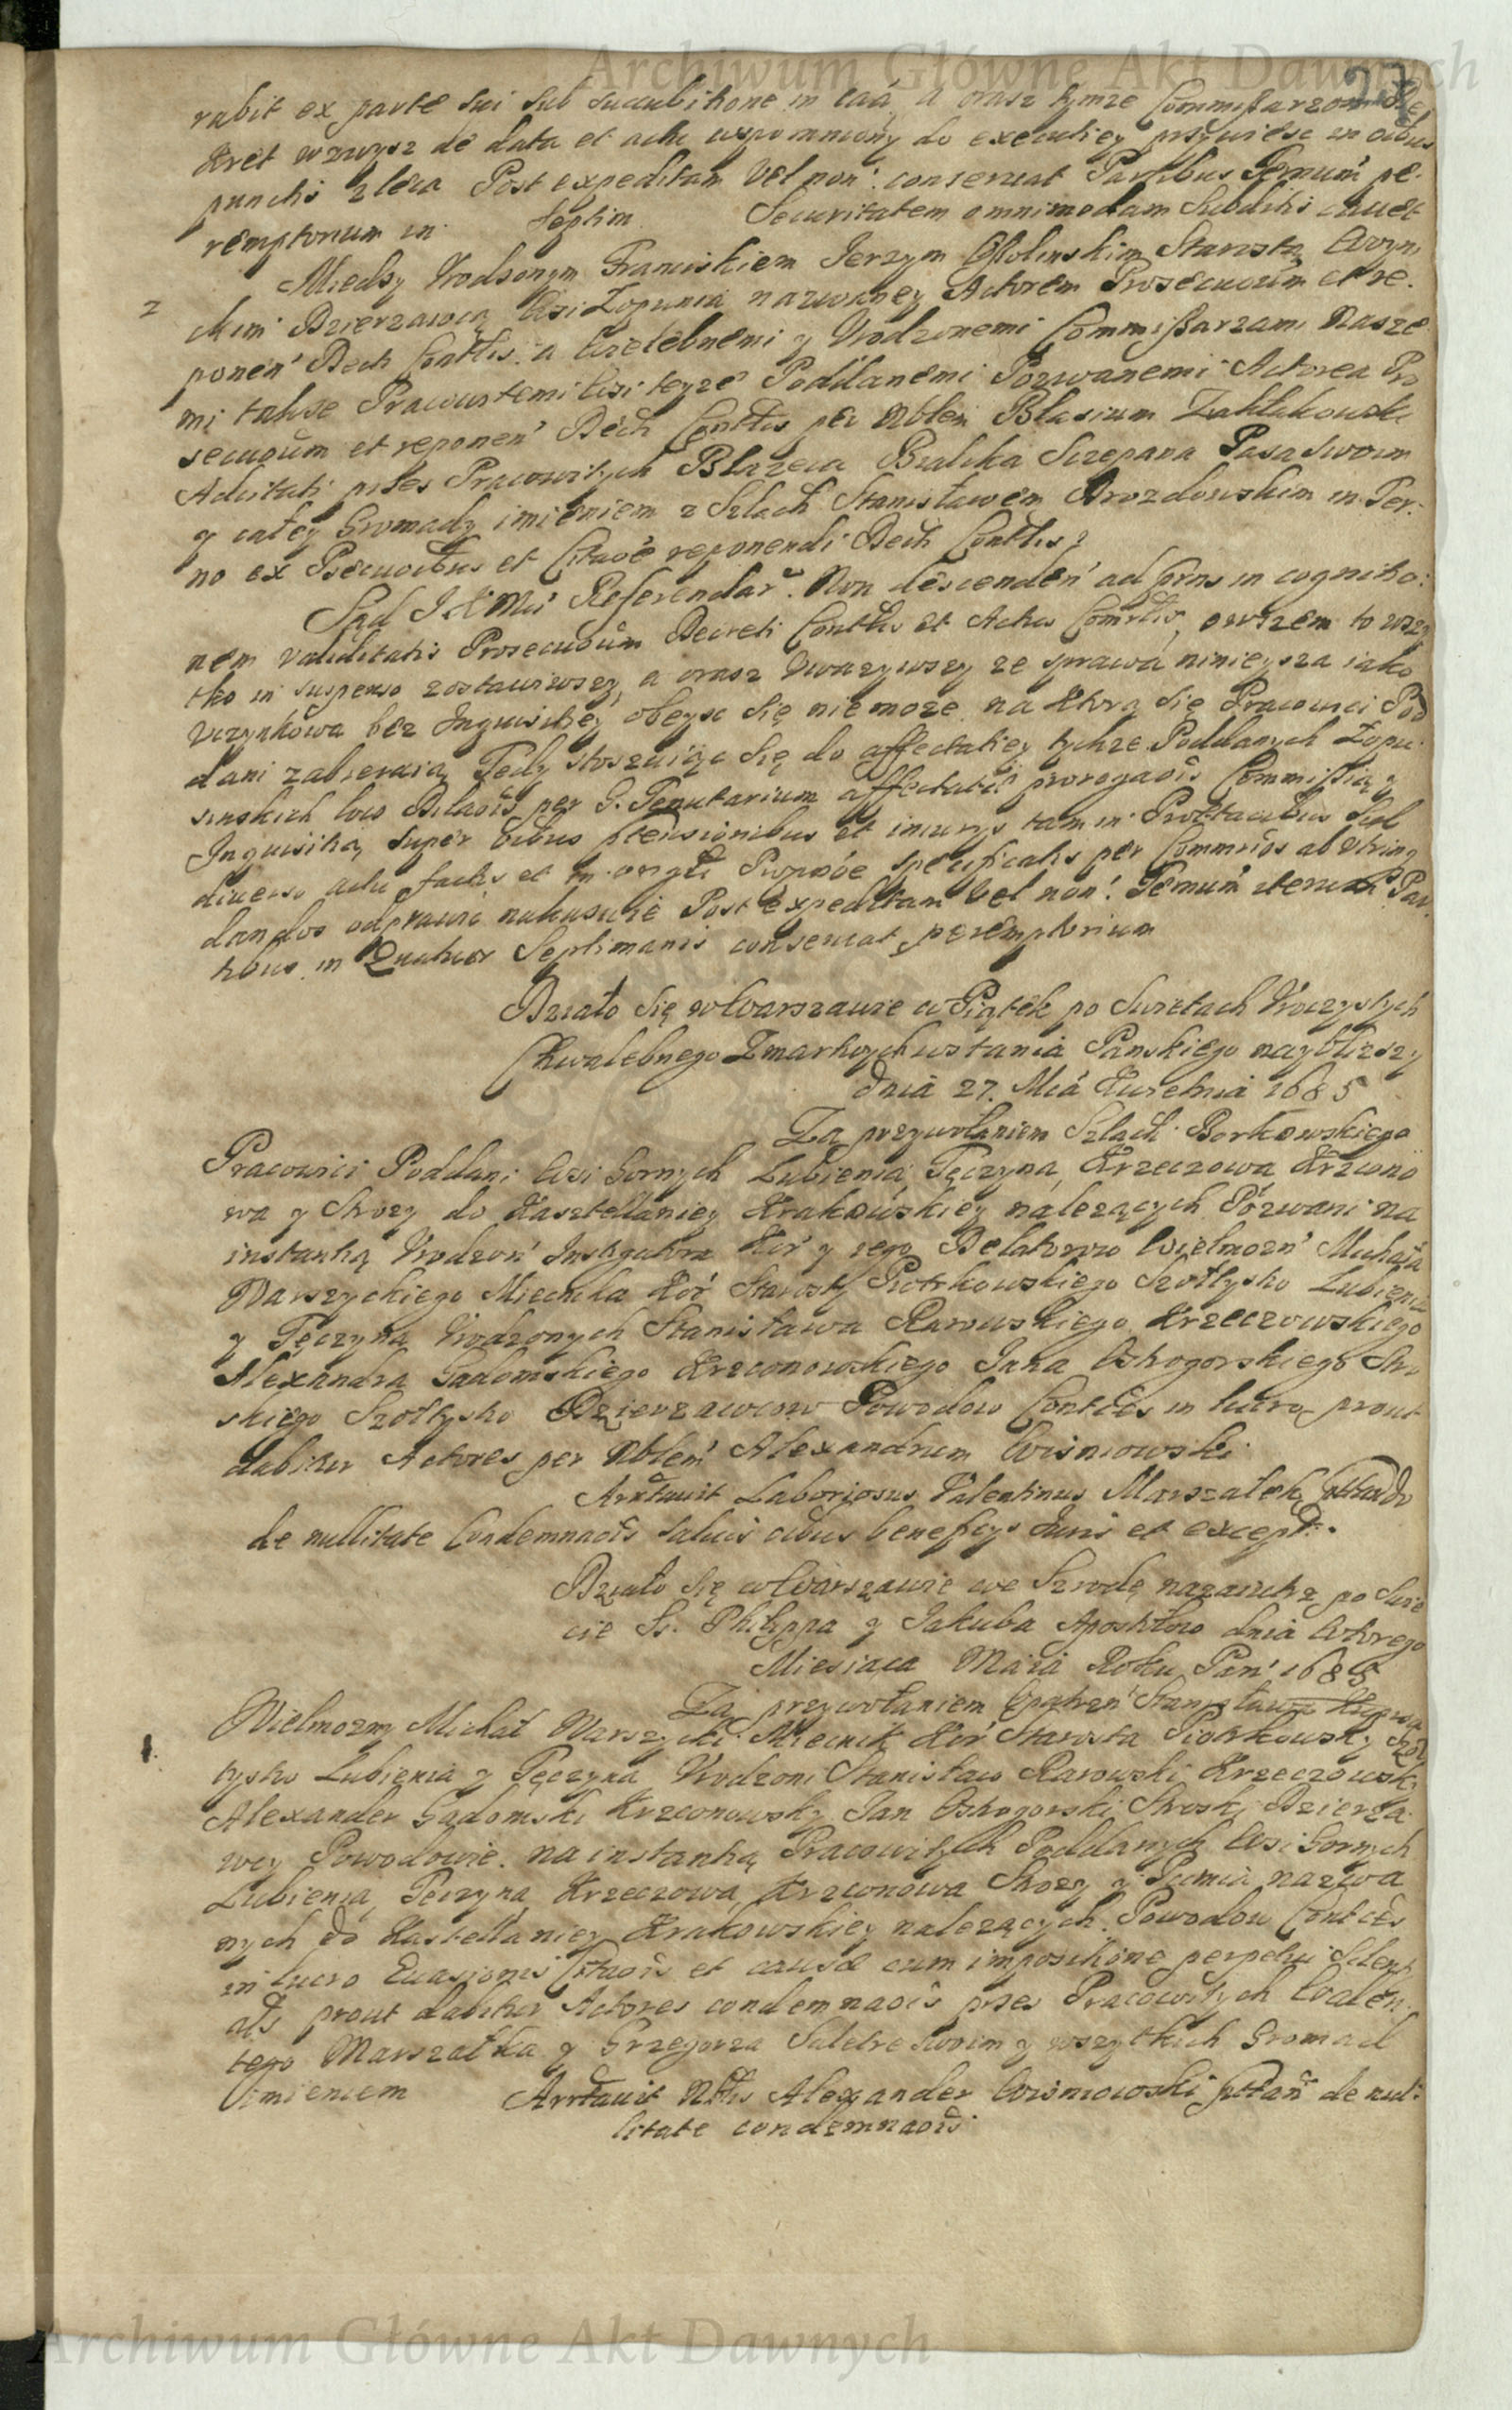 Archiwum Główne Akt Dawnych
27
rubit ex parte sui sub succubitione in caâ a orasz tymze Commissarzom De
kret wzwysz de data et actu wspomniony do executiey przywiesc in oibus
punctis zleca Post expeditam vel non conservat Partibus Termum pe
remptorium in Septim Securitatem omnimodam Subditis cavet
2 Miedzy Urodzonym Franciskiem Jerzym Starostą
ckim Dzierzawcą Wsi Zopunia nazwaney Actorem Prosecuoum et re
ponen Decti Contlis a Wielebnemi y Urodzonemi Commissarzami Nasze
mi takze Pracowitemi Wsi teyze Poddanemi Pozwanemi Actorea Pro
secuoum et reponen Decti Contlis per Nblem Blasium
Adcitati przes Pracowitych Blazeia Szczepana swoim
y całey Gromady imieniem z Szlach Stanisławem Drozdowskim in Ter
no ex Psecuoibus et Citaoe reponendi Decti Contlis
Sąd J K Mci Referendar. Non descenden ad prns in cognitio
nem validitatis Prosecuoum Decreti Contlis et Actus Comrlis, owszem to wszy
tko in suspenso zostawiwszy, a orasz Uwazywszy ze sprawa ninieysza iako
Uczynkowa bez Inquisitiey obeysc się niemoze, na ktorą się Pracowici Pod
dani zabieraią Tedy stosuiąc się do affectatiey tychze Poddanych Zopu
sinskich loco Dilaois per G. Tenutarium affectatae prorogaois Commissią y
Inquisitią super oibus ptensionibus et iniurys tam in Prottaoibus sub
diverso actu factis et in orgli Propoôe specificatis per Commrios ab utrinq
dandos odprawić nakazuie Post expeditam vel non Temum iterum Par
tibus in Quatuor Septimanis conservat peremptorium
Działo się w Warszawie w Piątek po Swietach Uroczystych
Chwalebnego Zmartwychwstania Panskiego nayblizszy
dnia 27. Mca Kwietnia 1685
Za przywołaniem Szlach Borkowskiego
Pracowici Poddani Wsi Gornych Lubienia, Tęczyna, Krzeczowa Krzconó
wa y Strozy do Kasztellaniey Krakowskiey należących Pozwani na
instantią Urodzon Instygatora Kor y iego Delatorow Wielmozn Michała
Warszyckiego Miecznika Kor Starosty Piotrkowskiego Szołtystw Lubienia
y Tęczyna Urodzonych Stanisława Rarowskiego Krzeczowskiego
Alexandra Gadomskiego Krzconowskiego Jana Ostrogorskiego Stro
skiego Szołtystw Dzierzawcow Powodow Contces in lucro prout
dabitur Actores per Nblem Alexandrum Wisniowski
Arrtavit Laboriosus Valentinus Marszałek
de nullitate Condemnaois salvis oibus beneficys Juris et except.
Działo się w Warszawie we Szrodę nazaiutrz po Swie
cie Ss. Philippa y Jakuba Apostołow dnia Wtorego
Miesiąca Maia Roku Pan 1685
Za przywołaniem Opatrzn Stanisława
1. Wielmozny Michał Warszycki Miecznik Kor Starosta Piotrkowsky Szoł
tystw Lubienia y Tęczyna Urodzoni Stanisław Rarowski Krzeczowski
Alexander Gadomski Krzconowsky Jan Ostrogorski Stroski Dzierza
wcy Powodowie. na instantią Pracowitych Poddanych Wsi Gornych
Lubienia, Tęczyna, Krzeczowa, Krzconowa Strozy y Pcimia nazwa
nych do Kastellaniey Krakowskiey nalezących Powodow Contces
in lucro Evasionis Citaois et causae cum impositione perpetui Silenty
als prout dabitur Actores condemnaois przes Pracowitych Walen
tego Marszałka y Grzegorza swoim y wszytkich Gromad
Imieniem Arrtavit Nblis Alexander Wisniowski de nul
litate condemnaois
Archiwum Główne Akt Dawnych